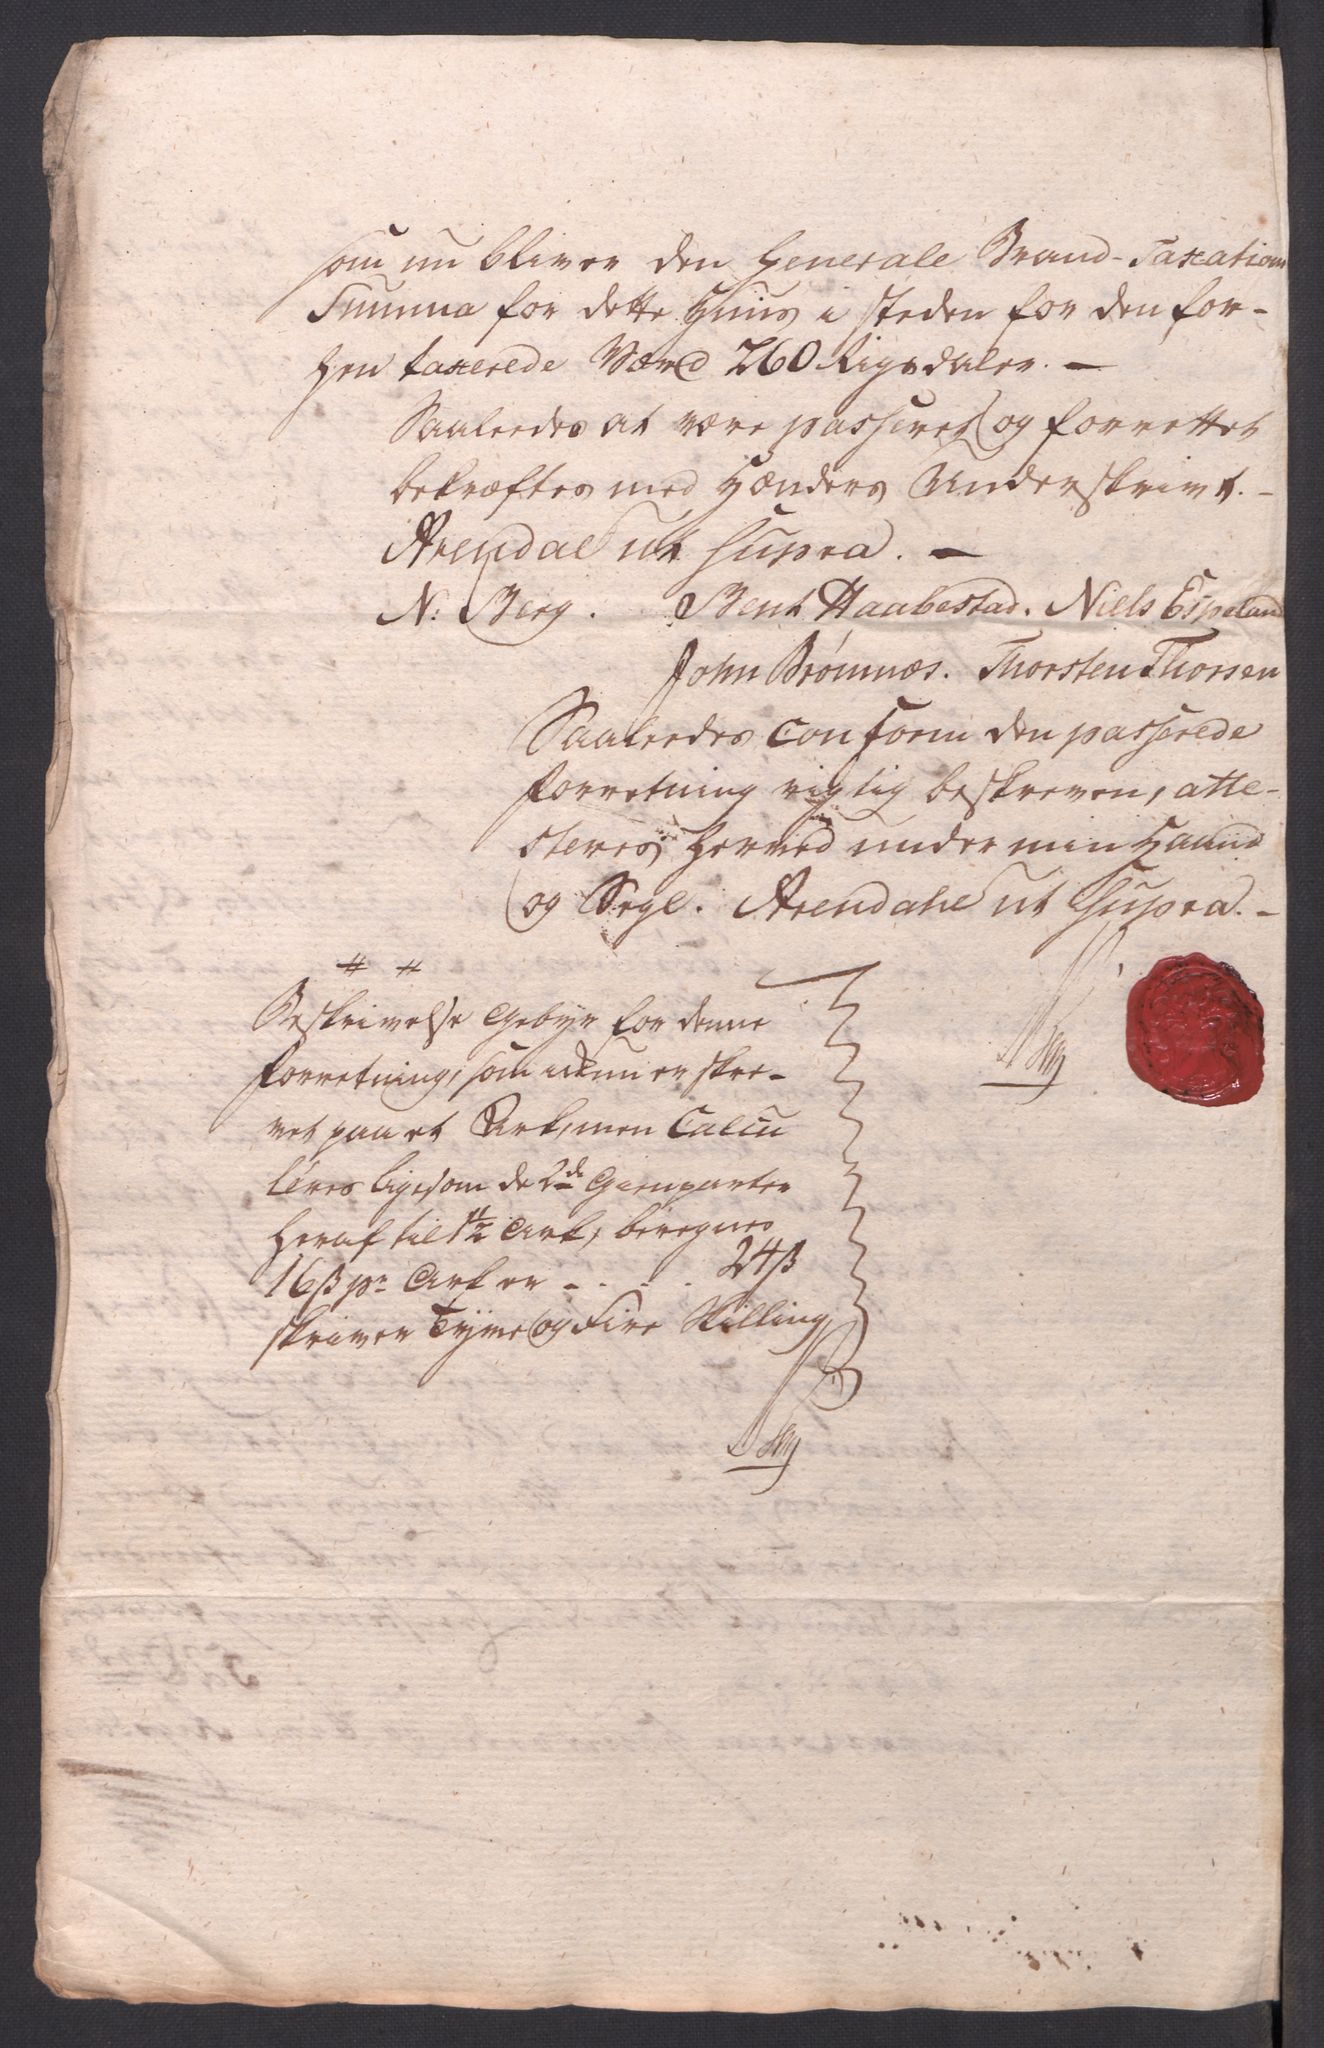 som nu bliver den Generale Brand-Taxations
Summa for dette Huus i steden for den for-
hen taxerede Værd 260 Rigsdaler. —
Saaledes at være passeret og forrettet
bekræftes med Hænders Underskrivt. -
Arendal ut supra. —
N: Berg. Bent Haabestad. Niels Espeland
John Brömnæs. Thorsten Thorsen
Saaledes conform den passerede
Forretning rigtig beskreven, atte-
steres herved under min Haand
og Segl. Arendahl ut supra. -
Berg
Beskrivelse Gebyr for denne
Forretning, som er skre-
vet paa et Ark, men Calcu
leres ligesom de 2de Gienparter
heraf til 1 1/2 Ark, beregnes
16 ß pr Ark er - . - . 24 ß
skriver Tyve og Fire Skilling
Berg